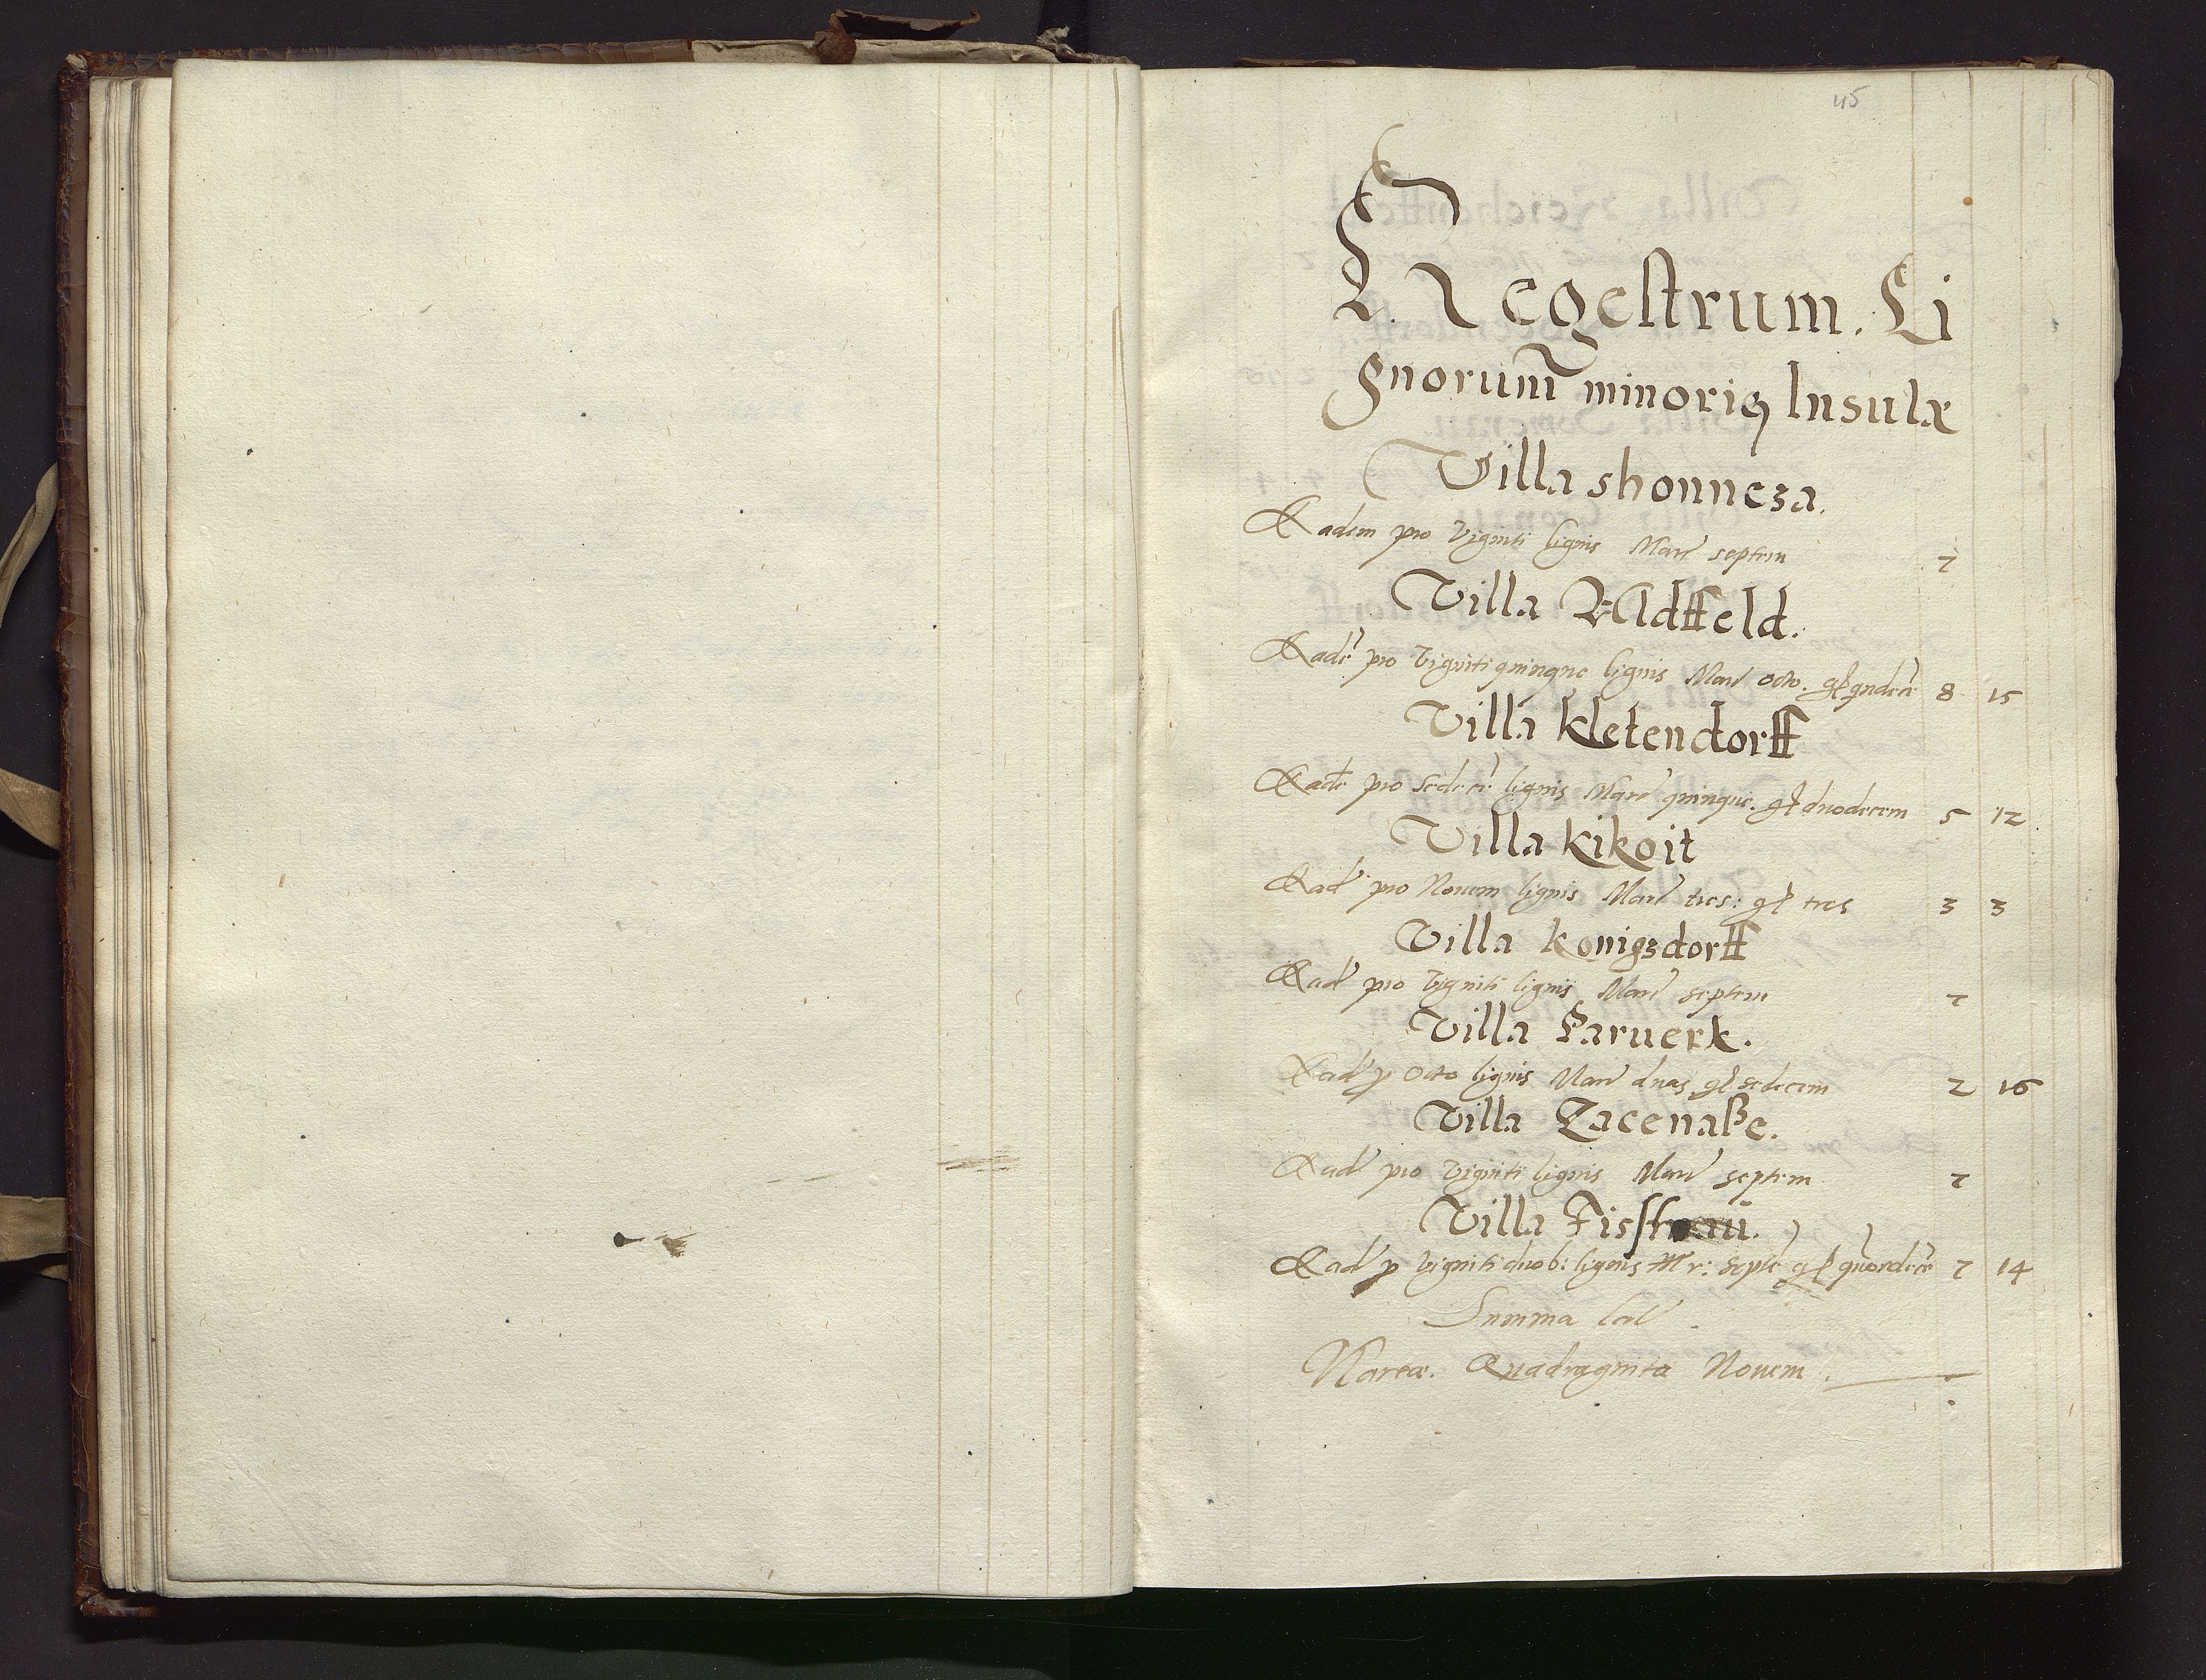 45
Regestrum. Li
gnorum minoris Insulæ
Villa shonneza.
Eadem pro viginti lignis Marc septem 7
Villa Aldffeld.
Eadē pro viginti quinque lignis Marc octo. gł quīdecē 8 15
Villa kletendorff
Eadē pro sedecē lignis Marc quinque. gł duodecem 5 12
Villa kikoit
Ead pro Novem lignis Marc tres: gł tres 3 3
Villa konigzdorff
Ead pro viginti lignis Marc septem 7
Villa Paruerk.
Ead p octo lignis Marc duas gł sedecem 2 16
Villa Lacenaße.
Ead pro viginti lignis Marc septem 7
Villa
Ead p viginti duob: lignis Mr: septē gł quordecē 7 14
Summa lat
Marcæ. Quadraginta Novem.